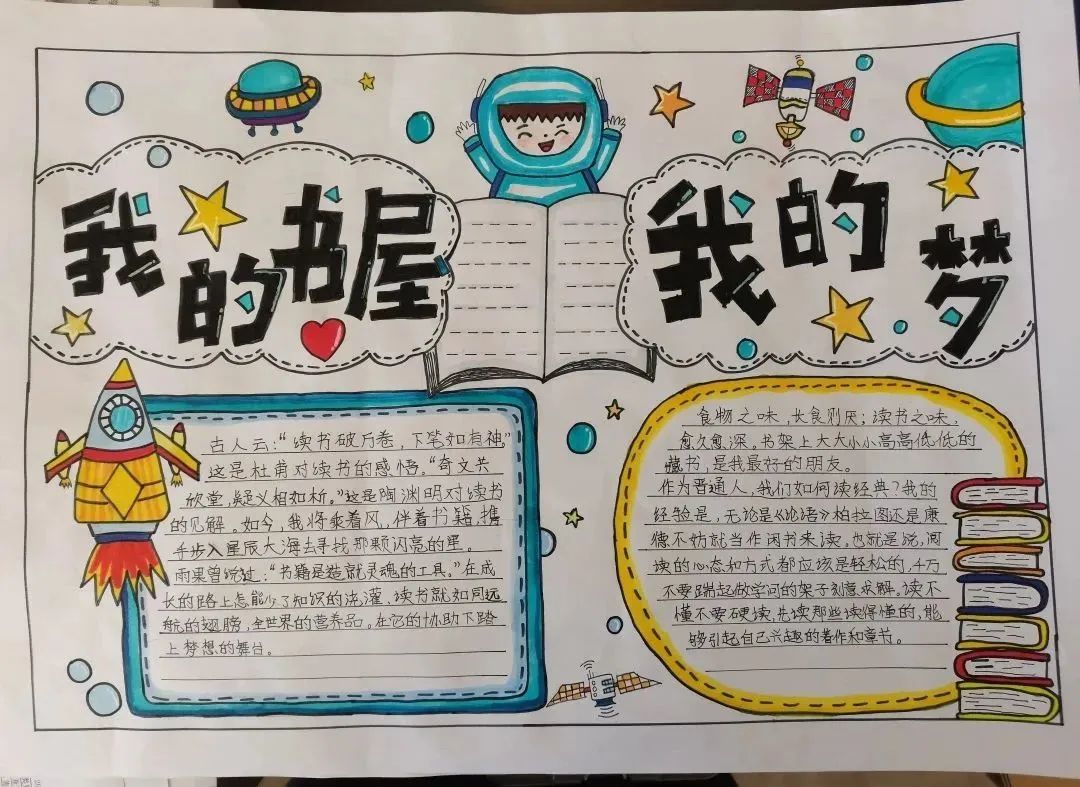 我的书屋
我的梦
古人云：“续书破万卷，下笔如有神，”
这是杜甫对读书的感悟。“奇文共
欣堂，疑义相如析。”这是陶渊明对续书
的见解。如今，我将乘着风，伴着书籍，携
手步入星辰大海去寻找那颗闪亮的星。
雨果曾说过：“书籍是造就灵魂的工具。”在成
长的路上怎能少了知识的浇灌，读书就如同远
航的翅膀，全世界的营养品。在它的协助下踏
上梦想的舞台。
食物之味，长食则厌；读书之味，
愈久愈深。书架上大大小小高高低低的
藏书，是我最好的朋友。
作为普通人，我们如何读经典？我的
经验是，无论是《论语》柏拉图还是康
德不妨就当作闲书来读。也就是说，阅
读的心态和方式都应该是轻松的，4万
不要踹起做学问的架子刻意求解。读不
懂不要硬读，先读那些读得懂的，能
够引起自己兴趣的著作和章节。